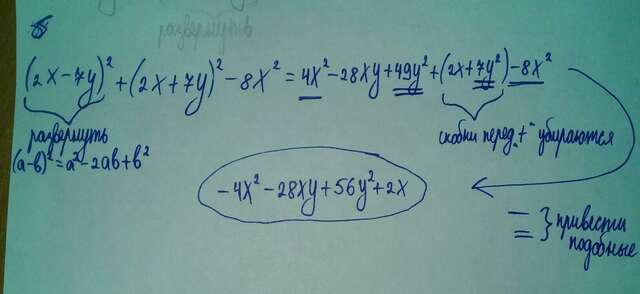 (2x-7y)² + (2x+7y)² - 8x² = 4x² - 28xy + 49y² + (2x+7y²) - 8x²
развернуть
(a-b)² = a² - 2ab + b²
скобки перед „+“ убираются
-4x² - 28xy + 56y² + 2x
привести
подобные